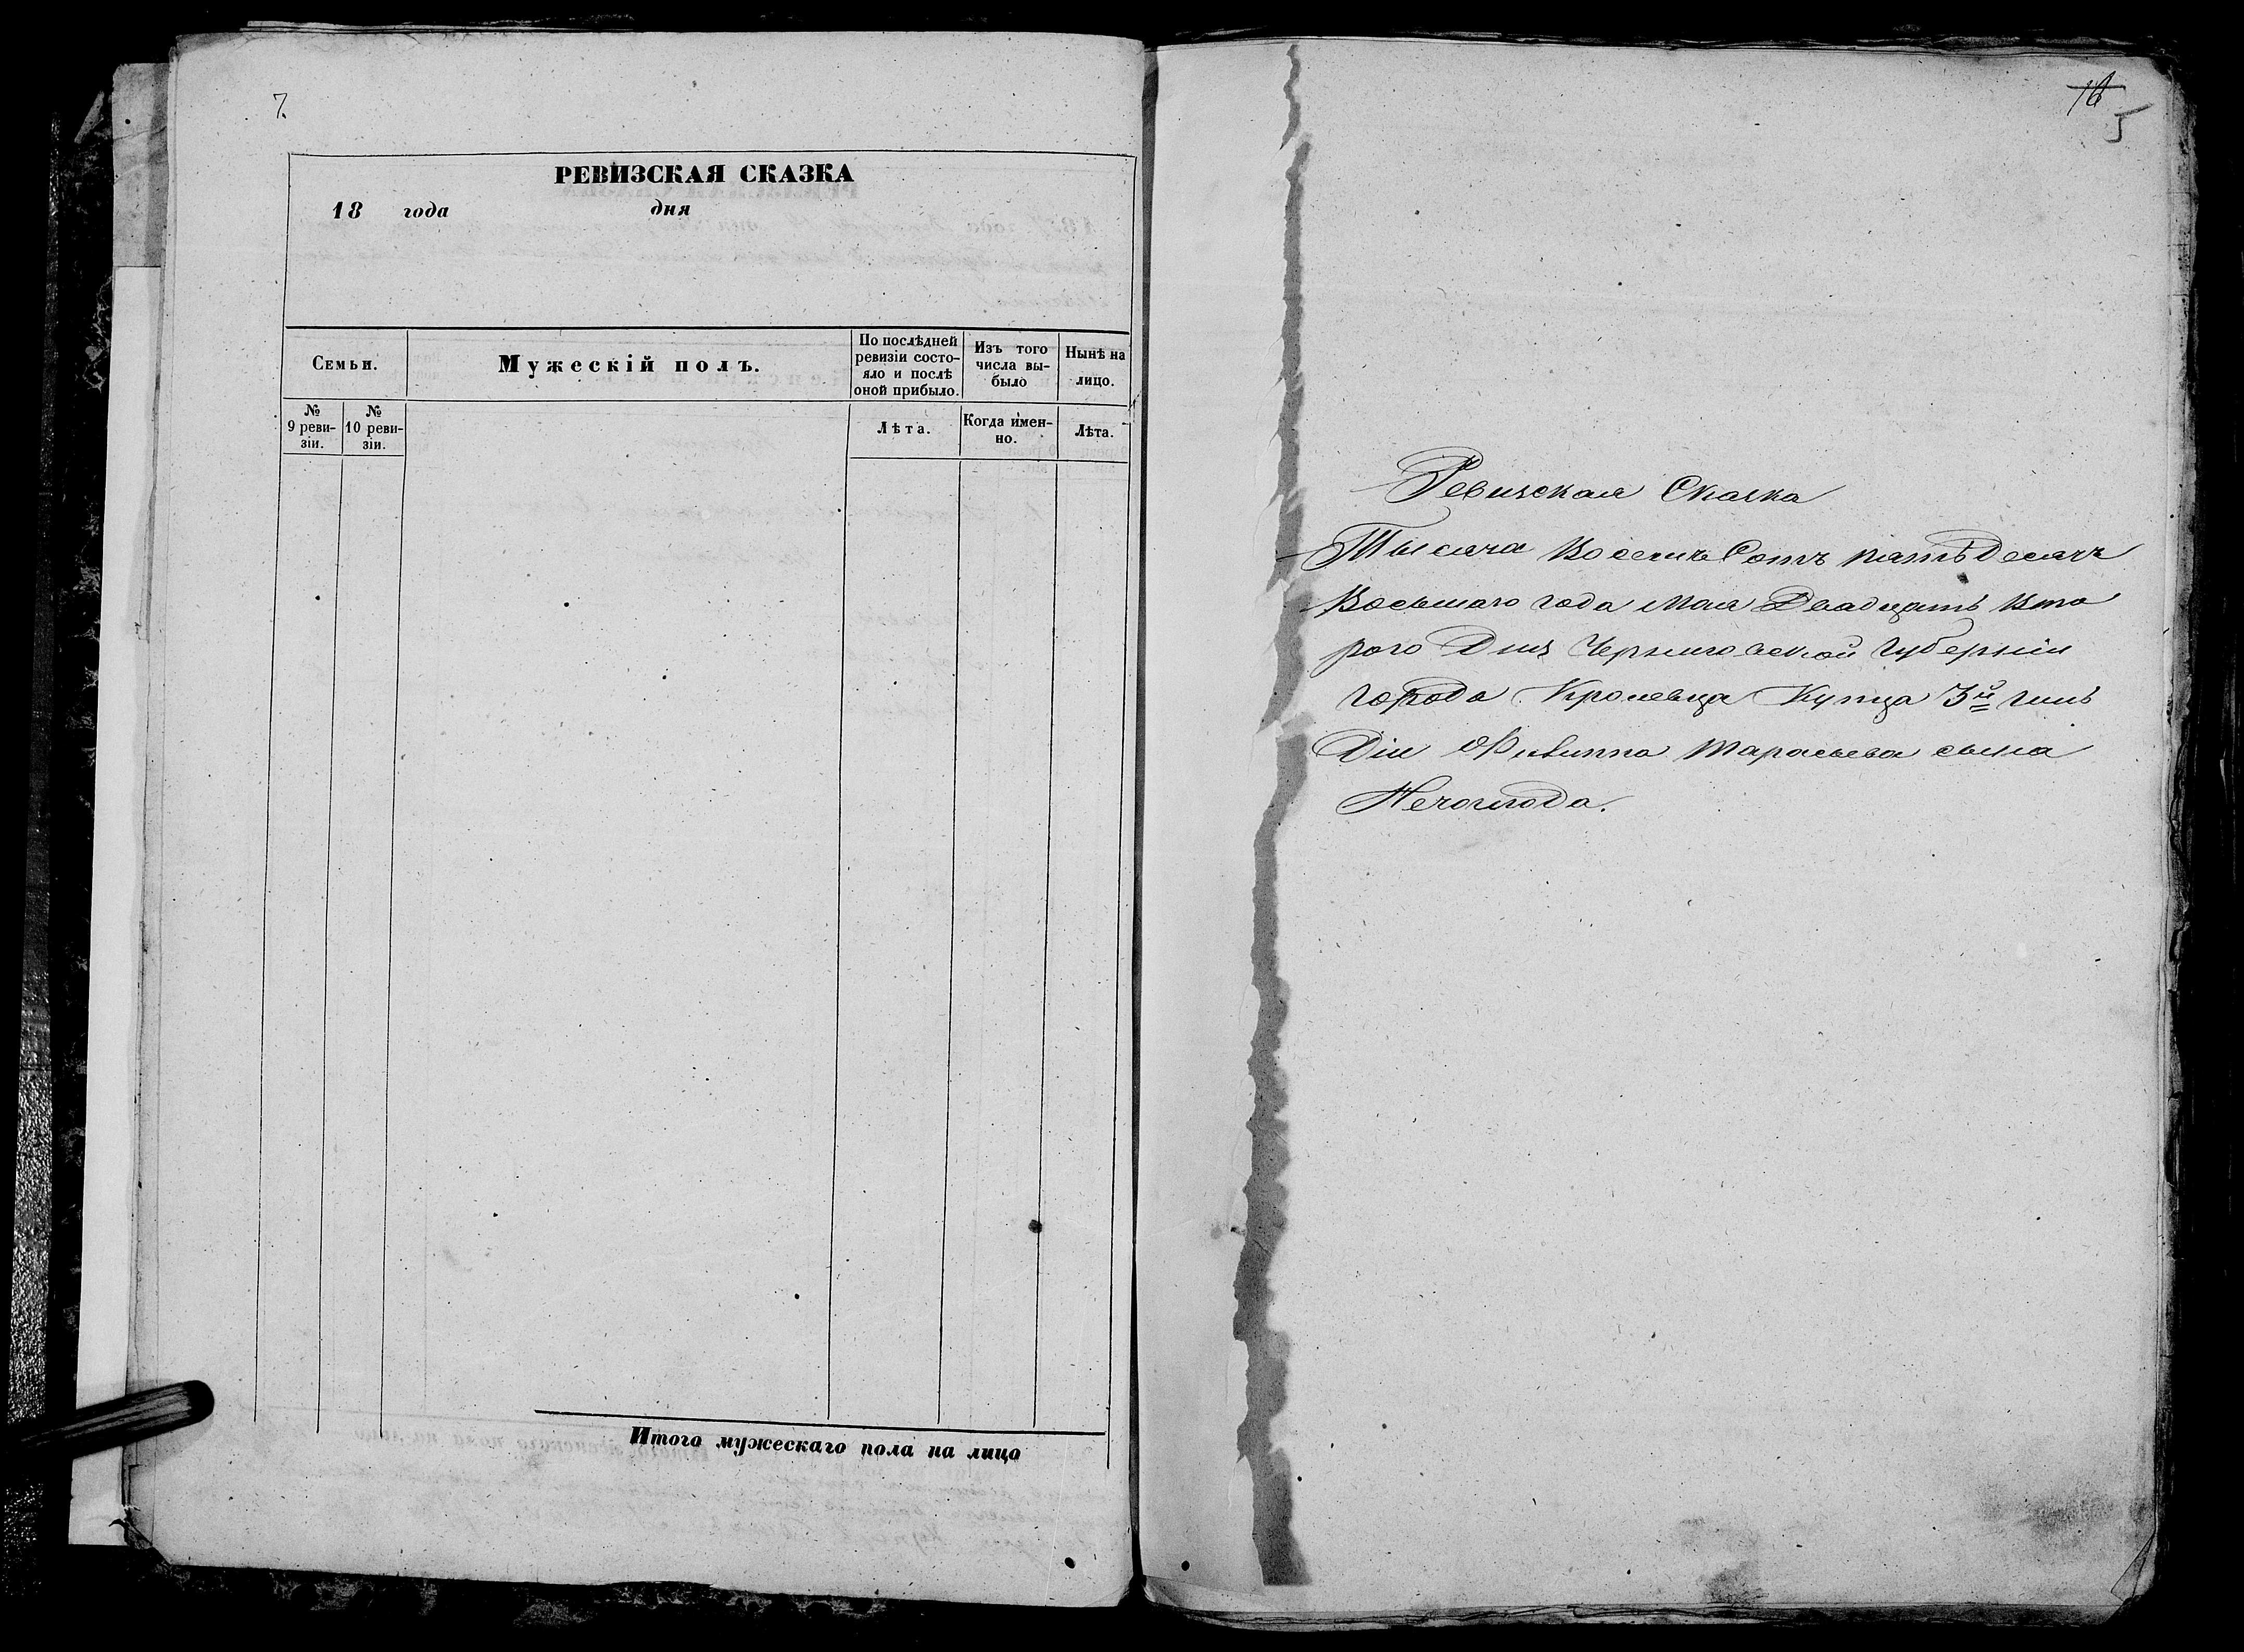 7.
РЕВИЗСКАЯ СКАЗКА
18 года дня
Семьи.
Мужескій полъ.
По послѣдней
ревизіи состо-
яло и послѣ
оной прибыло.
Изъ того
числа вы-
было
Нынѣ на
лицо.
№
9 реви-
зіи.
№
10 реви-
зіи.
Лѣта.
Когда имен-
но.
Лѣта.
Итого мужескаго пола на лицо
5
Ревизская Сказка
Тысяча Восемь Сотъ пятьдесятъ
Восьмаго года Мая Двадцать Вто
рого Дня Черниговской Губерніи
города Кролевца Купца 3й гиль
Діи Филиппа Тарасьева сына